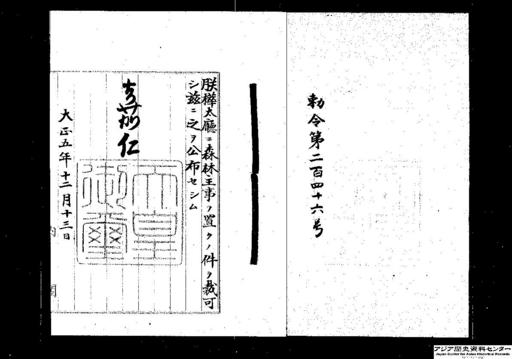 勅令第二百四十六号
朕樺太廳ニ森林主事ヲ置クノ件ヲ裁可
シ茲ニ之ヲ公布セシム
嘉仁
天皇
御璽
大正五年十二月十三日
内閣
アジア歴史資料センター
Japan Center for Asian Historical Records